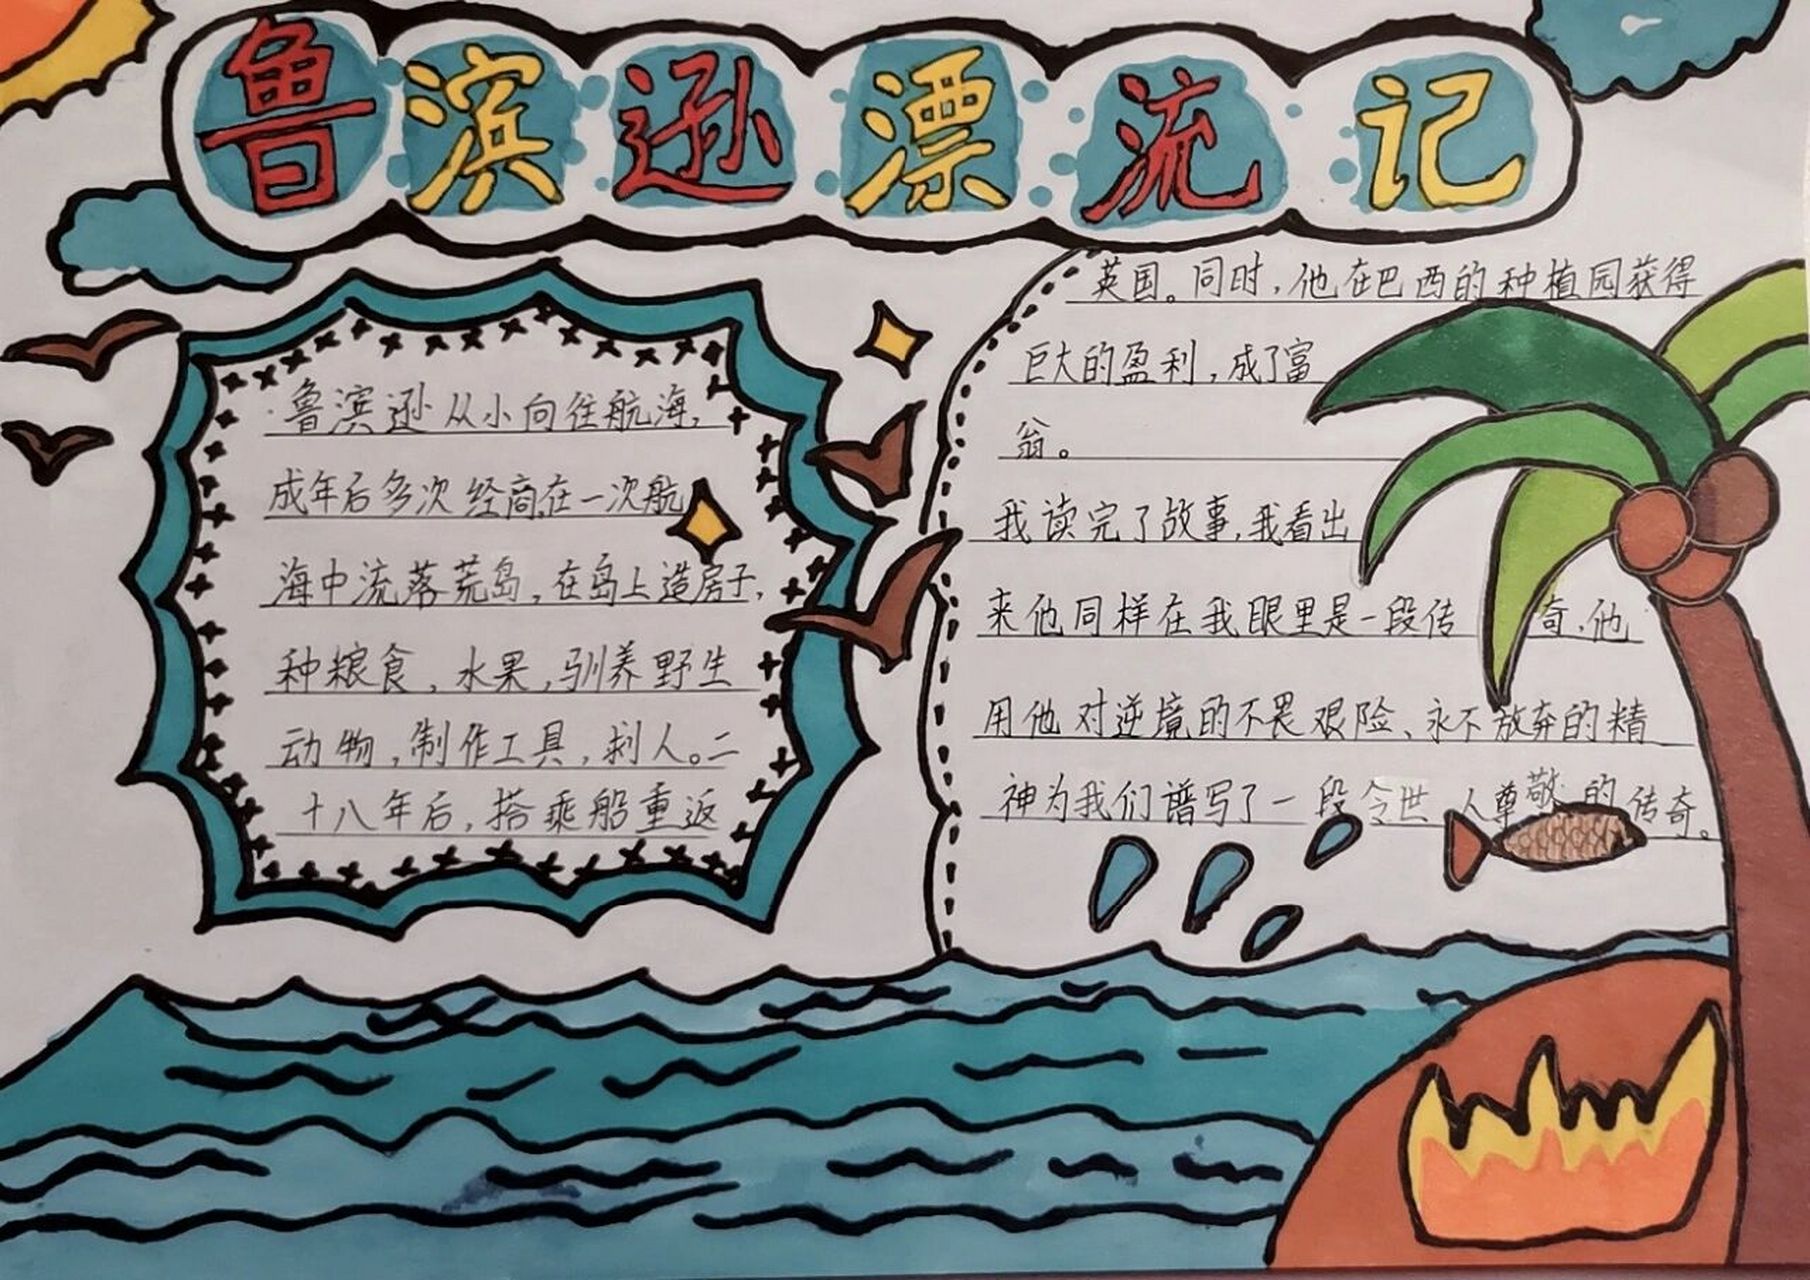 鲁滨逊漂流记
鲁滨逊从小向往航海,
成年后多次经商,在一次航
海中流落荒岛,在岛上造房子,
种粮食,水果,驯养野生
动物,制作工具,刹人。二
十八年后,搭乘船重返
英国。同时,他在巴西的种植园获得
巨大的盈利,成了富
翁。
我读完了故事,我看出
来他同样在我眼里是一段传奇.他
用他对逆境的不畏艰险、永不放弃的精
神为我们谱写了一段令世人尊敬的传奇。